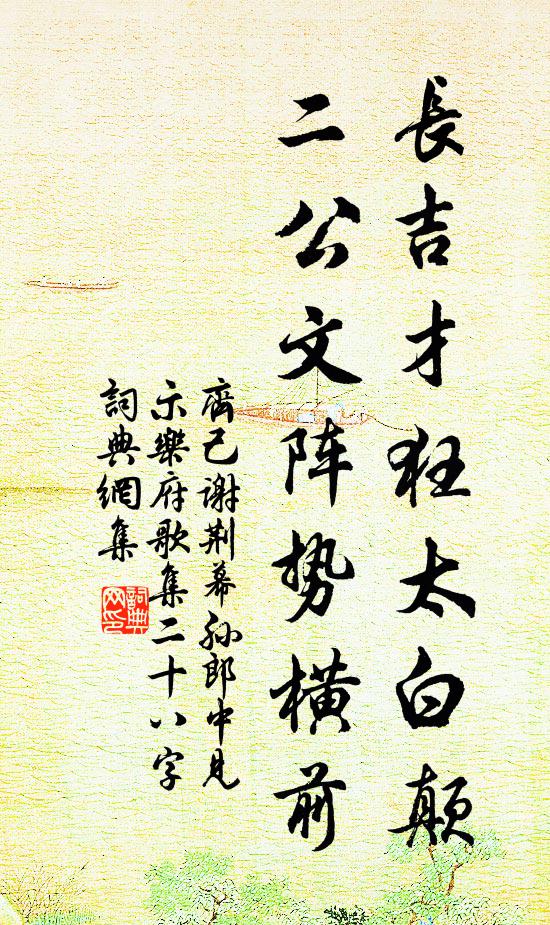 長吉才狂太白颠
二公文阵势横前
齊己谢荆幕孙郎中見
示樂府歌集二十八字
詞典網集
詞典
网印